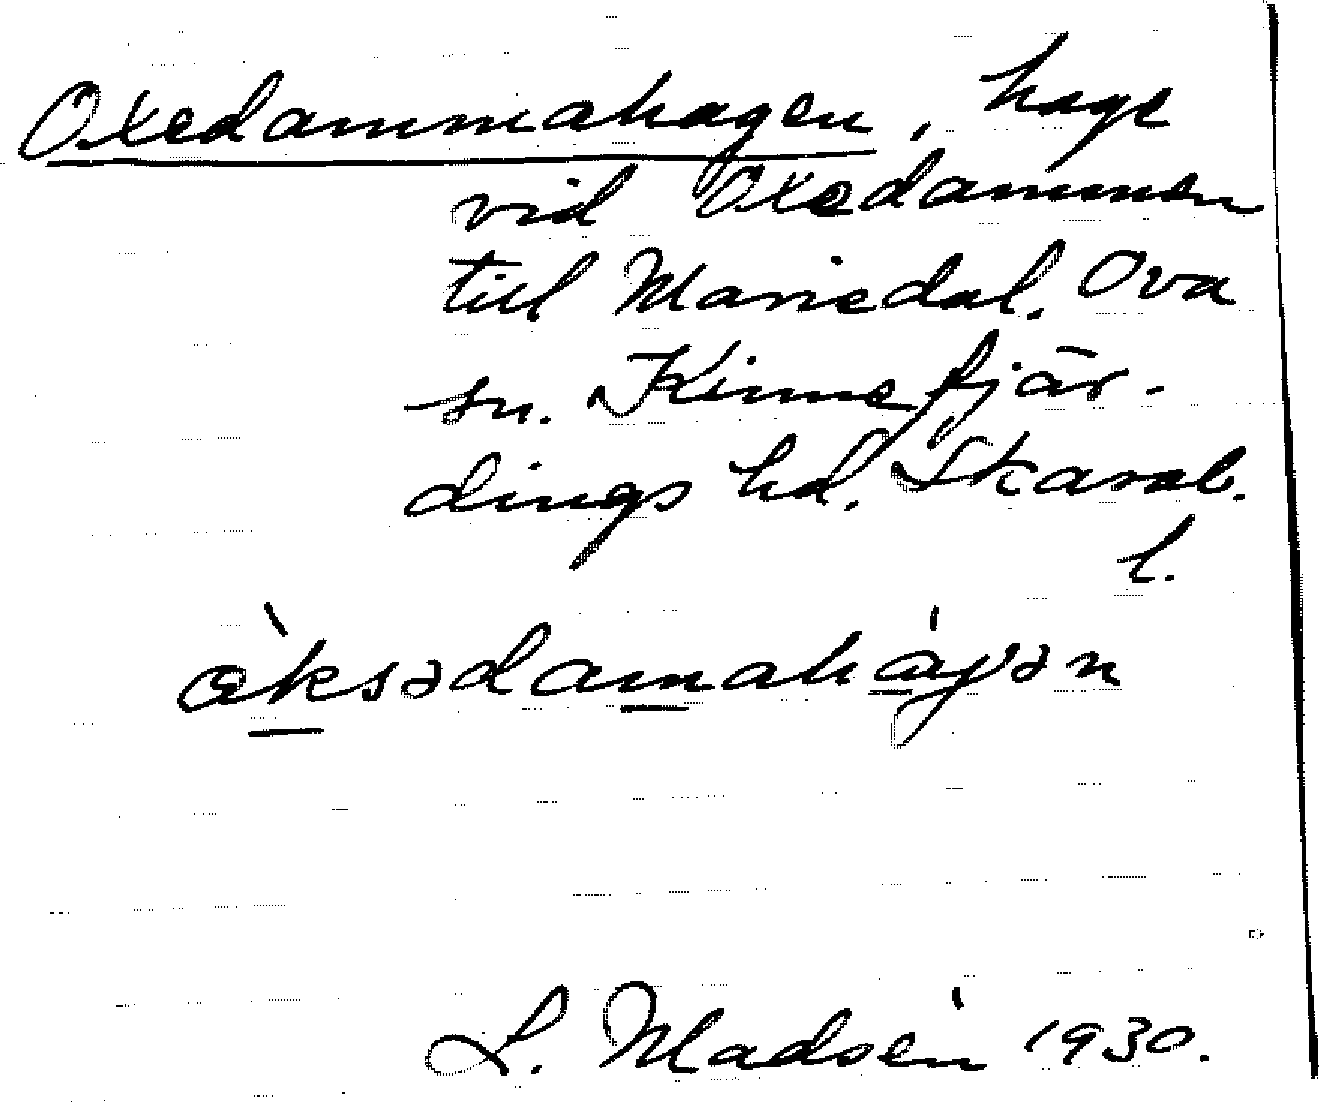 Oxedammahagen, hage
vid Oxedammen
till Mariedal. Ova
sn. Kinnefjär-
dings hd. Skarab.
l.
ὰksədamahágən
L. Madsén 1930.